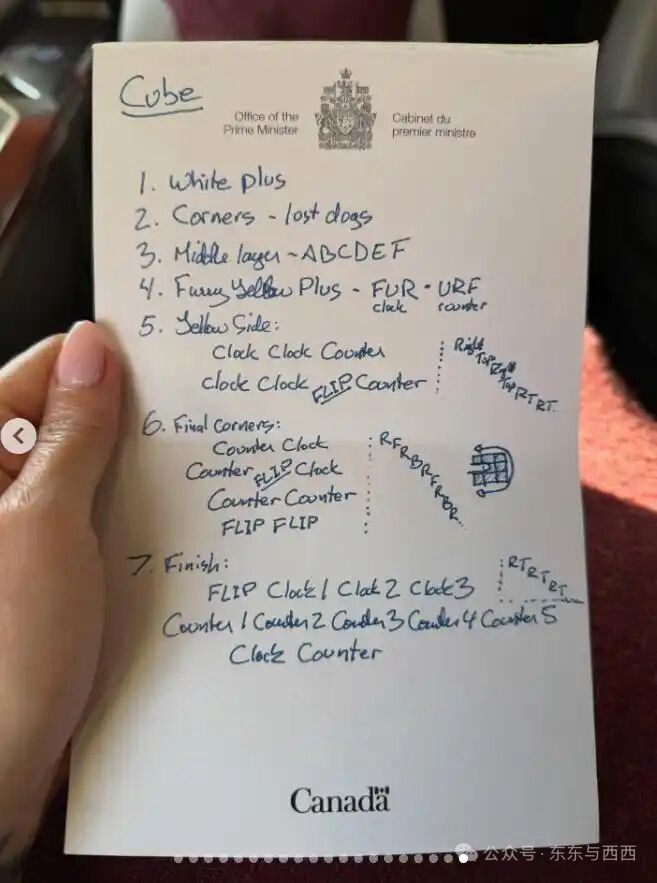 Cube
Office of the
Prime Minister
Cabinet du
premier ministre
1. White plus
2. Corners - lost dogs
3. Middle layer - ABCDEF
4. Funny Yellow Plus - FUR · URF
clock counter
5. Yellow Side:
Clock Clock Counter
Clock Clock FLIP Counter
Right Top Right Top RT RT
6. Final Corners:
Counter Clock
Counter FLIP Clock
Counter Counter
FLIP FLIP
RFRBRFRBR
7. Finish:
FLIP Clock 1 Clock 2 Clock 3
RT RT RT
Counter 1 Counter 2 Counter 3 Counter 4 Counter 5
Clock Counter
Canada
公众号 · 东东与西西